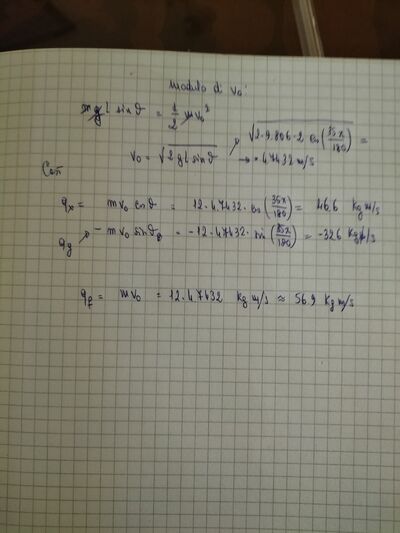 modulo di v₀:
mgl sinϑ = 1/2 mv₀²
√(2·9.806·2 cos(35π/180)) =
v₀ = √(2gl sinϑ) → = 4.7432 m/s
Con
qₓ = mv₀ cosϑ = 12·4.7432·cos(35π/180) = 46.6 kg m/s
q_y → -mv₀ sinϑ₀ = -12·4.7432·sin(35π/180) = -32.6 kg m/s
q_f = mv₀ = 12·4.7432 kg m/s ≈ 56.9 kg m/s